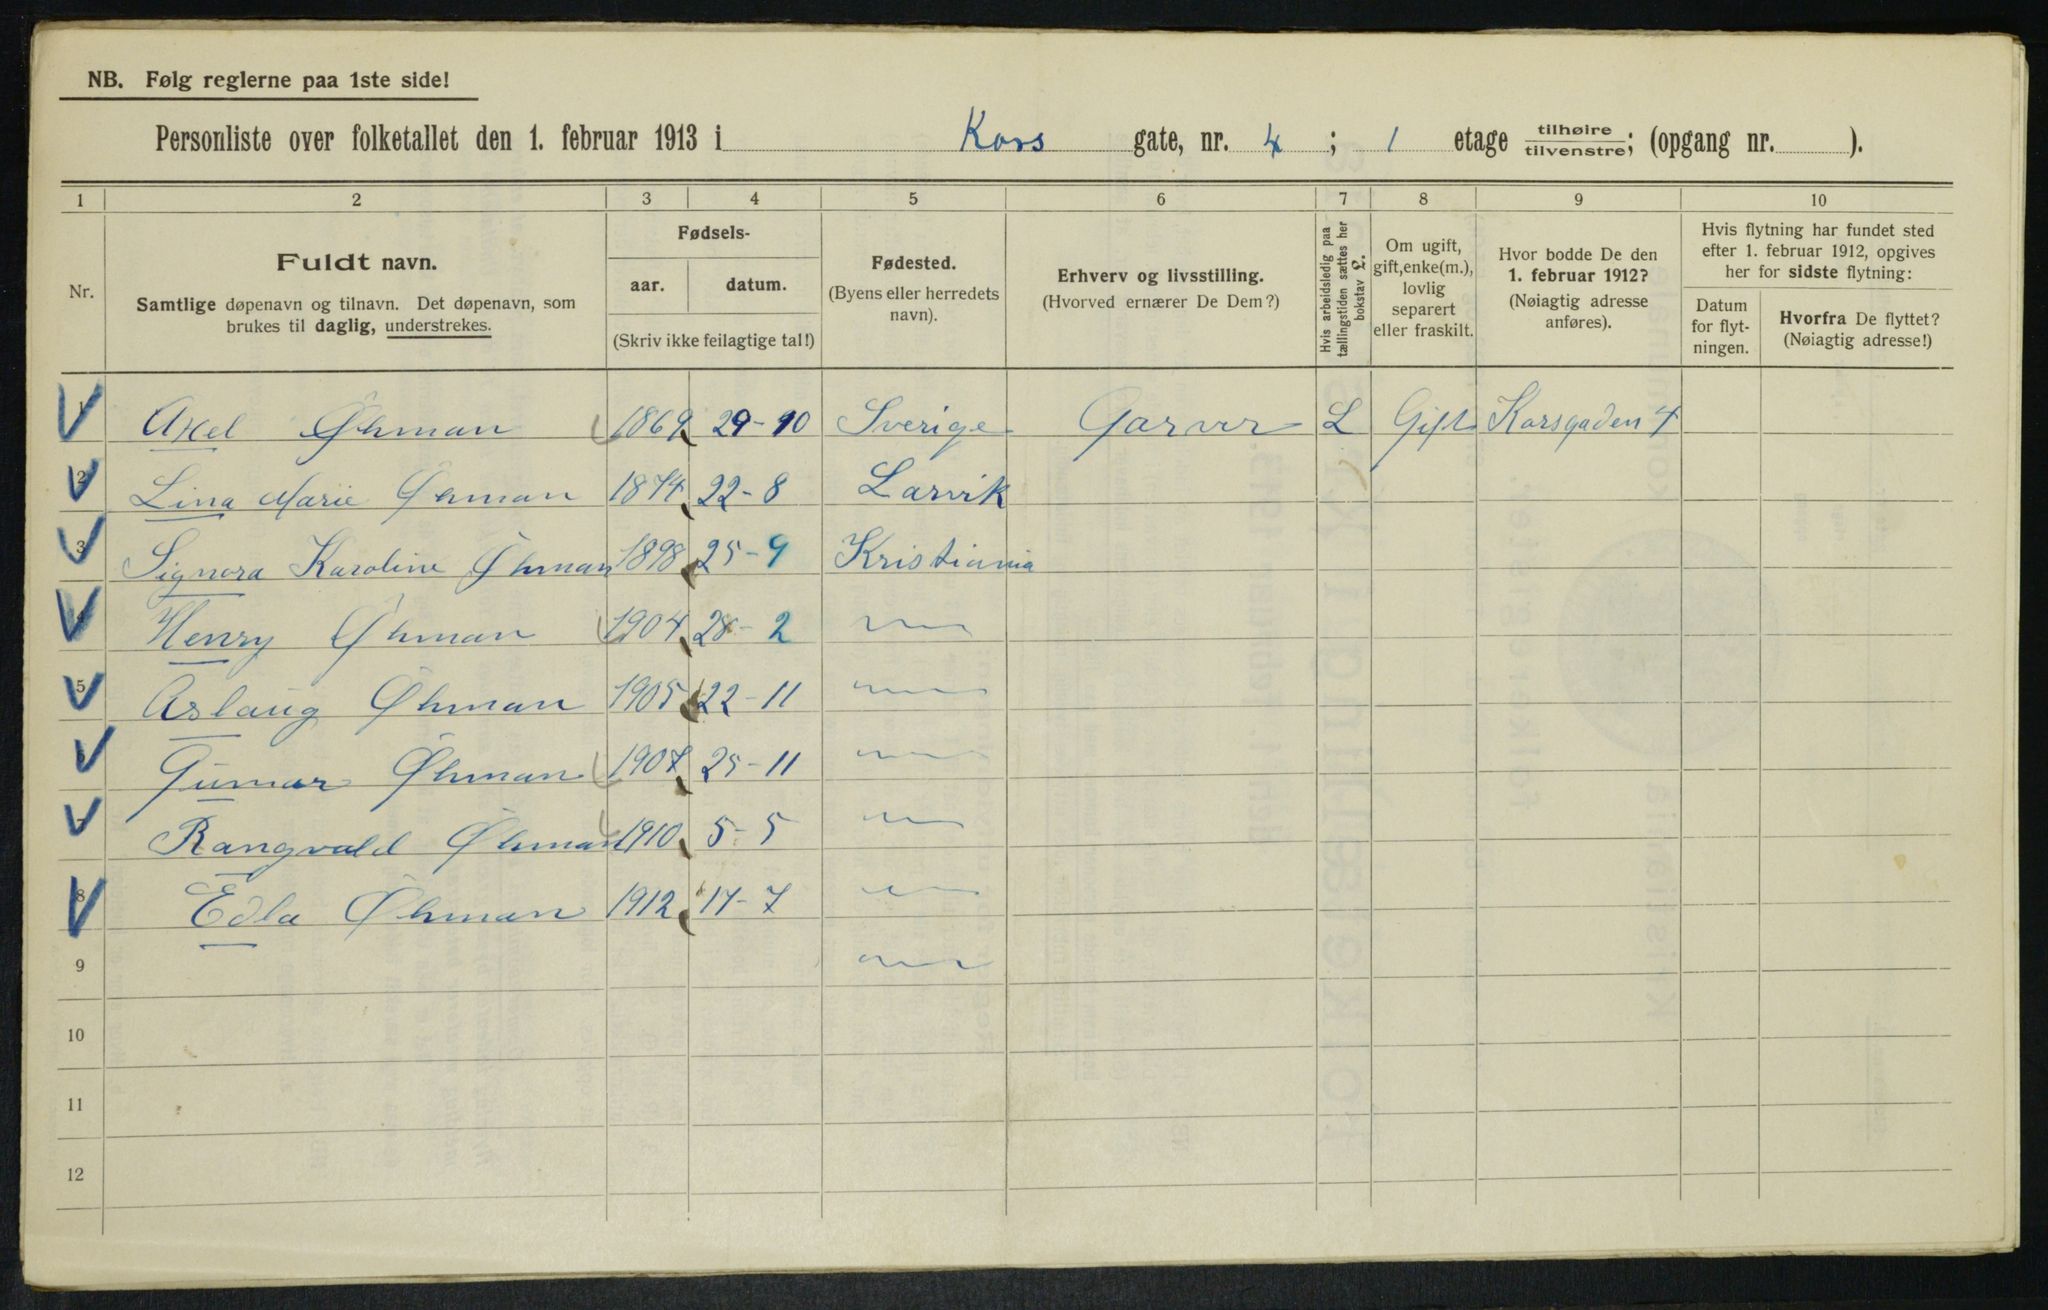 NB. Følg reglerne paa 1ste side!
Personliste over folketallet den 1. februar 1913 i Kors gate, nr. 4 ; 1 etage tilhøire/tilvenstre; (opgang nr. ).
1 2 3 4 5 6 7 8 9 10
Nr.
Fuldt navn.
Samtlige døpenavn og tilnavn. Det døpenavn, som
brukes til daglig, understrekes.
Fødsels-
aar. datum.
(Skriv ikke feilagtige tal!)
Fødested.
(Byens eller herredets
navn).
Erhverv og livsstilling.
(Hvorved ernærer De Dem?)
Hvis arbeidsledig paa
tællingstiden sættes her
bokstav L.
Om ugift,
gift, enke(m.),
lovlig
separert
eller fraskilt.
Hvor bodde De den
1. februar 1912?
(Nøiagtig adresse
anføres).
Hvis flytning har fundet sted
efter 1. februar 1912, opgives
her for sidste flytning:
Datum
for flyt-
ningen.
Hvorfra De flyttet?
(Nøiagtig adresse!)
1 Axel Öhman 1869 29-10 Sverige Garver L Gift Korsgaden 4
2 Lina Marie Öhman 1874 22-8 Larvik
3 Signora Karoline Öhman 1898 25-9 Kristiania
4 Henry Öhman 1904 28-2 —"—
5 Aslaug Öhman 1905 22-11 —"—
6 Gunnar Öhman 1907 25-11 —"—
7 Rangvald Öhman 1910 5-5 —"—
8 Edla Öhman 1912 17-7 —"—
9 —"—
10
11
12